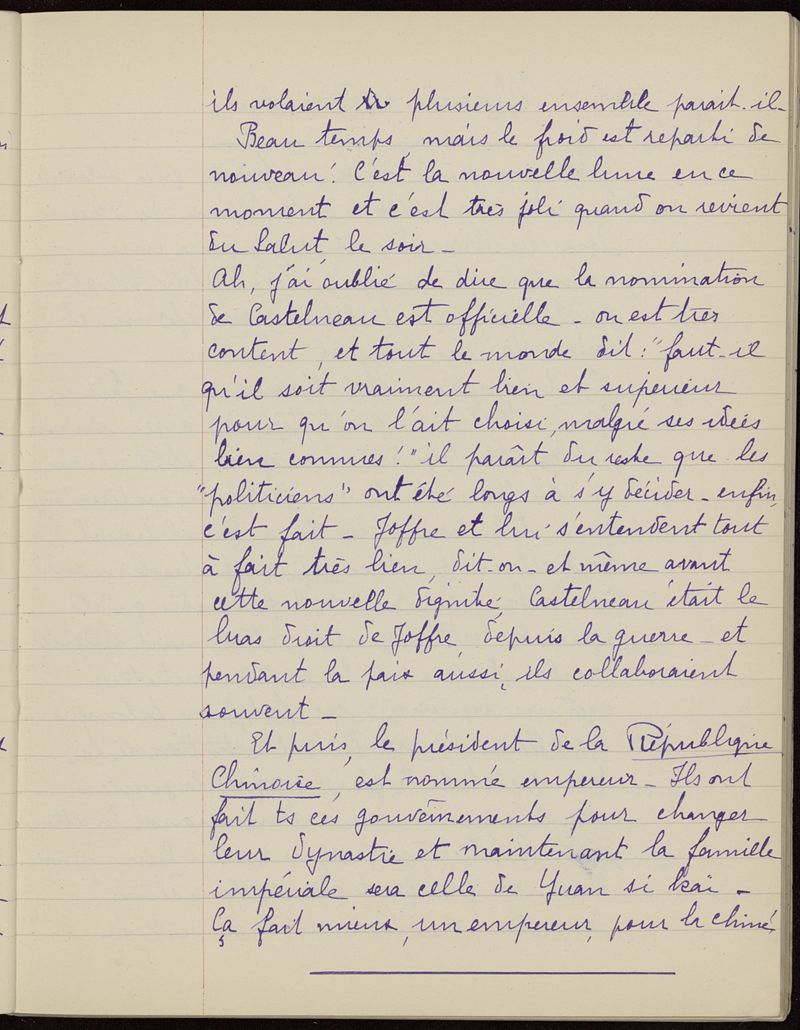 ils volaient plusieurs ensemble parait-il-
Beau temps, mais le froid est reparti de
nouveau! C'est la nouvelle lune en ce
moment et c'est très joli quand on revient
du Salut, le soir –
Ah, j'ai oublié de dire que la nomination
de Castelneau est officielle – on est très
content, et tout le monde dit: "faut-il
qu'il soit vraiment bien et supérieur
pour qu'on l'ait choisi, malgré ses idées
bien connues!" il paraît du reste que les
"politiciens" ont été longs à s'y décider – enfin,
c'est fait – Joffre et lui s'entendent tout
à fait très bien, dit-on – et même avant
cette nouvelle dignité, Castelneau était le
bras droit de Joffre, depuis la guerre – et
pendant la paix aussi, ils collaboraient
souvent –
Et puis, le président de la République
Chinoise, est nommé empereur – Ils ont
fait ts ces gouvernements pour changer
leur dynastie et maintenant la famille
impériale sera celle de Yuan si kaï –
Ça fait mieux, un empereur, pour la chine